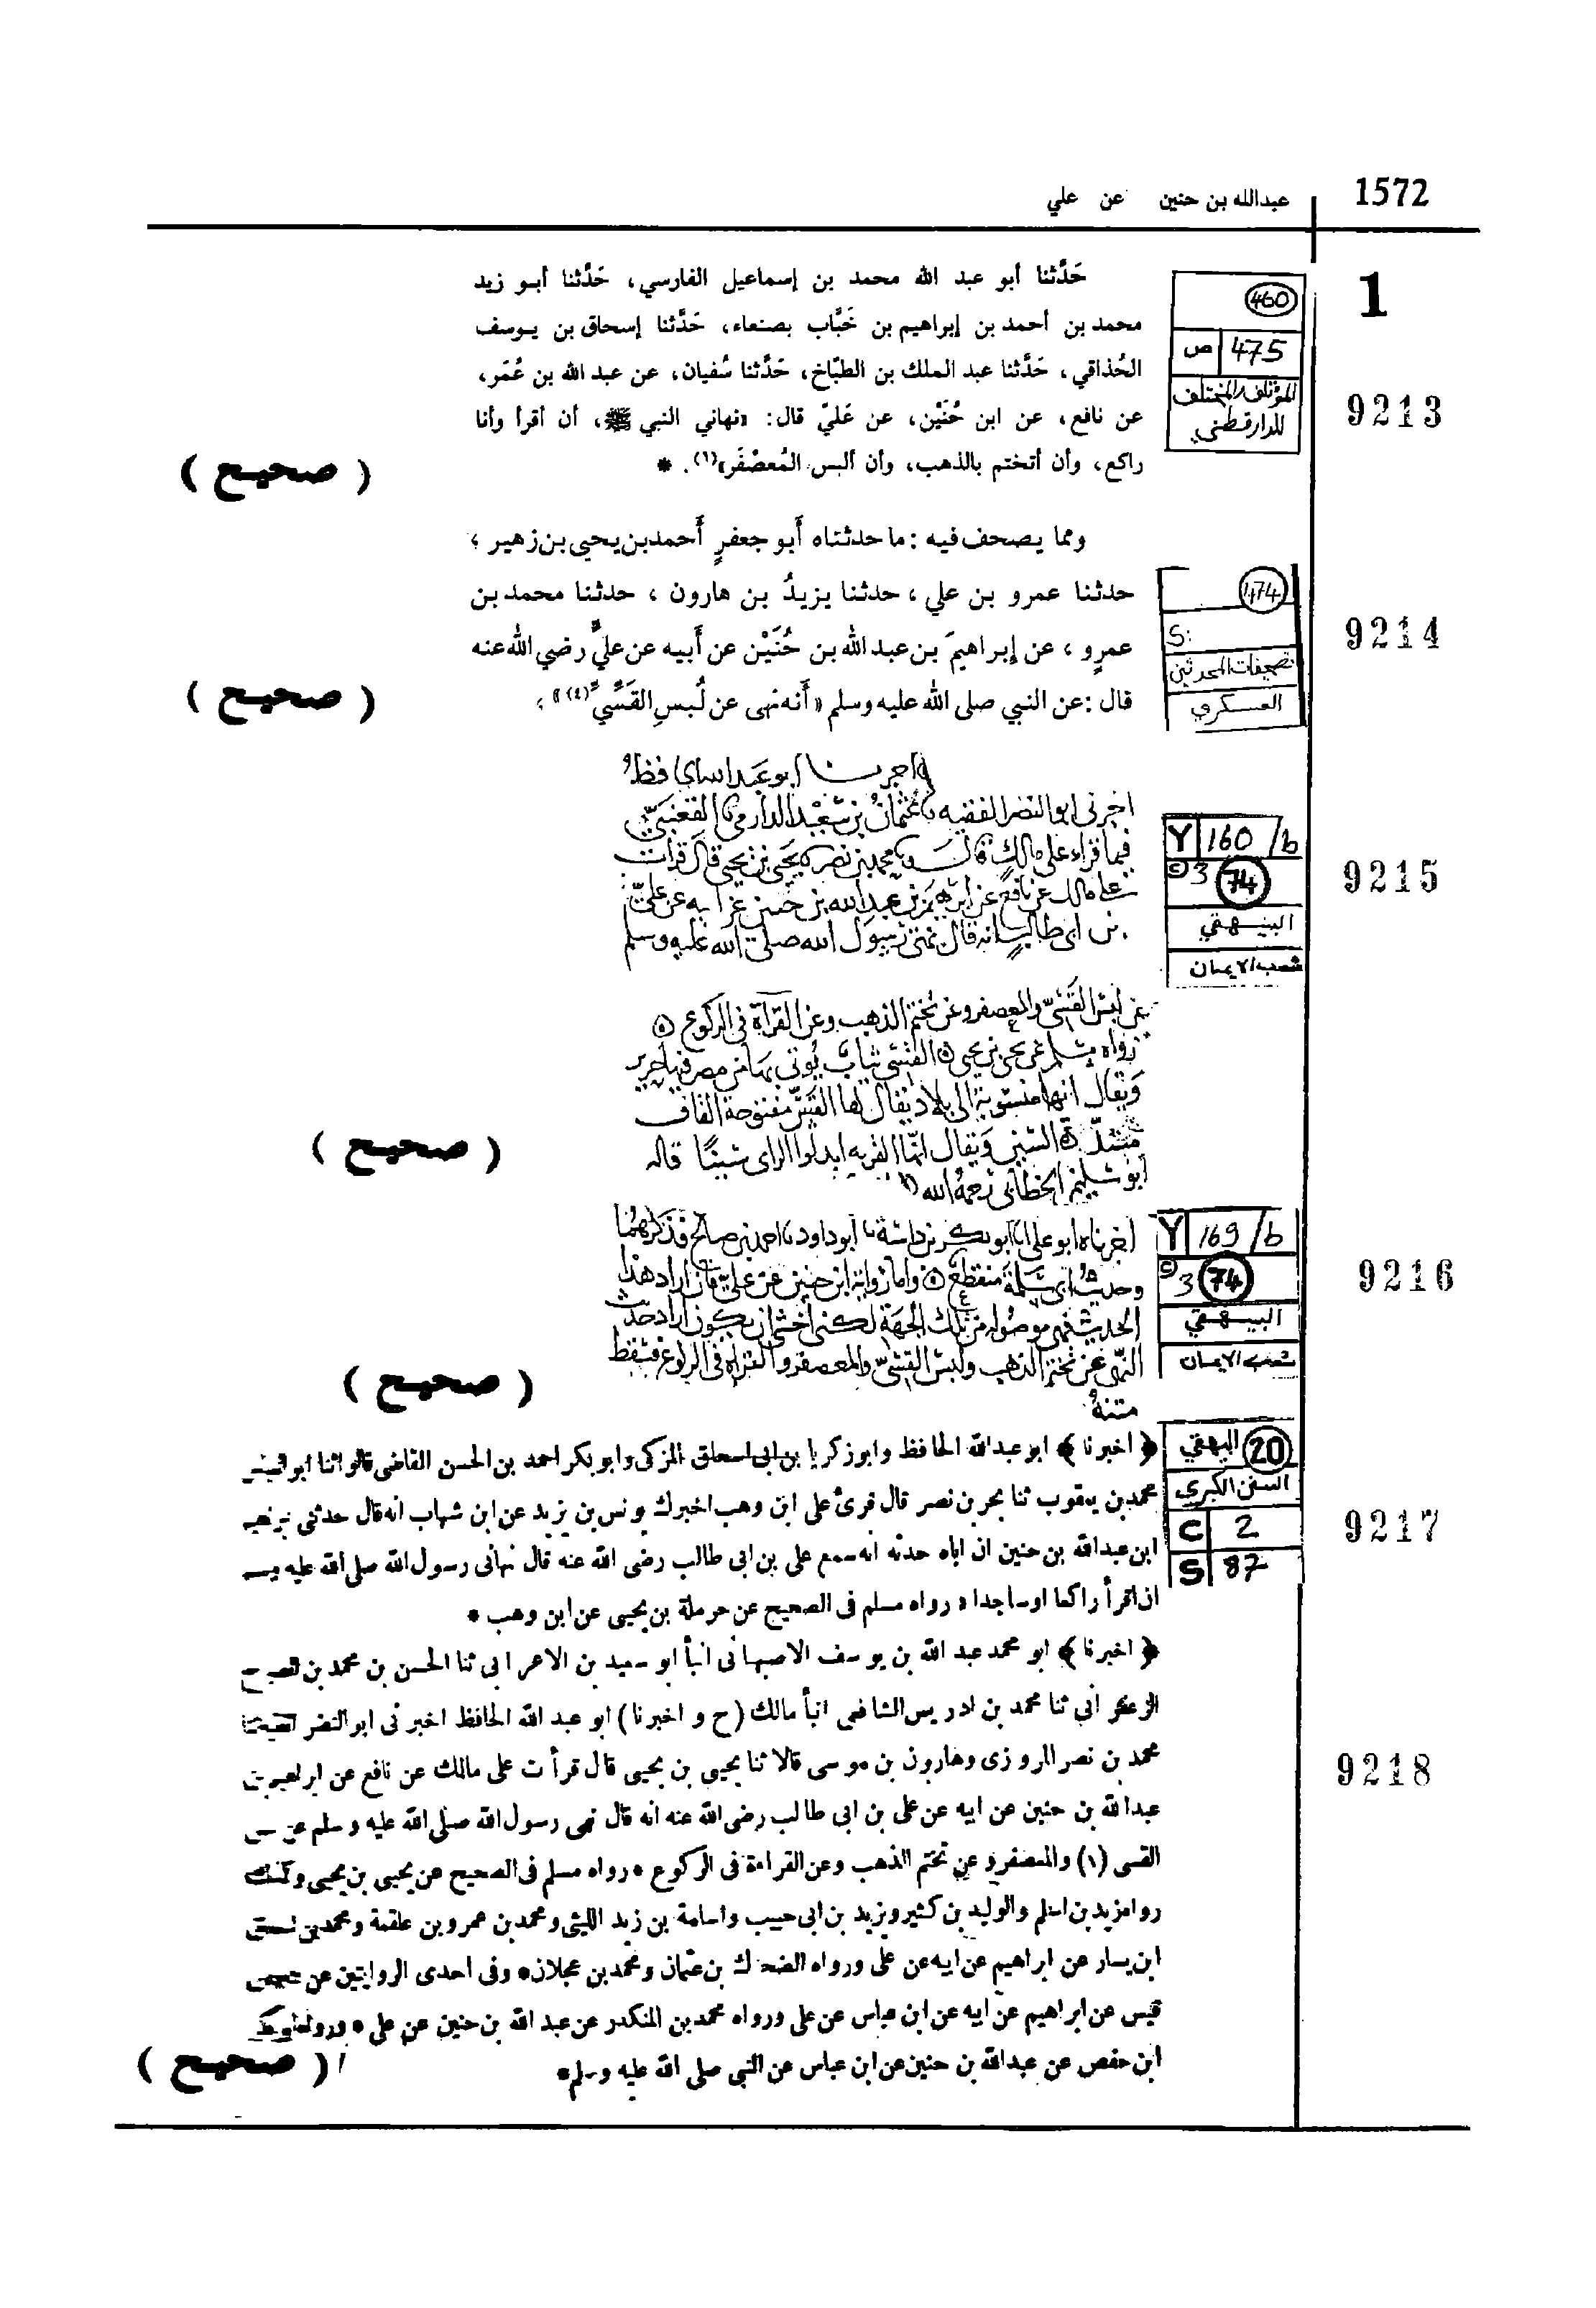 1572
عبدالله بن حنين عن علي
1
460
ص 475
المؤتلف والمختلف
للدارقطني
9213
حَدَّثنا أبو عبد الله محمد بن إسماعيل الفارسي، حَدَّثنا أبو زيد
محمد بن أحمد بن إبراهيم بن خَبَّاب بصنعاء، حَدَّثنا إسحاق بن يوسف
الحُذاقي، حَدَّثنا عبد الملك بن الطبّاخ، حَدَّثنا سُفيان، عن عبد الله بن عُمَر،
عن نافع، عن ابن حُنَيْن، عن عَليّ قال: «نهاني النبي ﷺ، أن أقرأ وأنا
راكع، وأن أتختم بالذهب، وأن ألبس المُعصْفَر»(١). *
( صحيح )
474
S:
تصحيفات المحدثين
العسكري
9214
ومما يصحف فيه : ما حدثناه أَبو جعفرٍ أَحمد بن يحيى بن زهير ؛
حدثنا عمرو بن علي ، حدثنا يزيدُ بن هارون ، حدثنا محمد بن
عمرٍو ، عن إبراهيمَ بن عبد الله بن حُنَيْن عن أَبيه عن عليٍّ رضي الله عنه
قال : عن النبي صلى الله عليه وسلم « أَنه نهى عن لُبسِ القَسِّيِّ (٤) » ،
( صحيح )
Y 160 /b
3 74
البيهقي
شعب الايمان
9215
اخبرنا ابو عبد الله الحافظ
اخبرني ابو النضر الفقيه عثمان بن سعيد الدارمي القعنبي
فيما قراء على مالك قال محمد بن نصر يحيى بن يحيى قال قرات
على مالك عن نافع عن ابرهيم بن عبد الله بن حنين عن ابيه عن علي
بن ابي طالب انه قال نهى رسول الله صلى الله عليه وسلم
عن لبس القسي والمعصفر وعن تختم الذهب وعن القرآة في الركوع
رواه مسلم عن يحيى بن يحيى القسي ثياب يوتى بها من مصر فيها حرير
ويقال انها منسوبة الى بلاد يقال لها القس مفتوحة القاف
مشددة السين ويقال انها القزيه ابدلوا الزاي سينا قاله
ابو سليمن الخطابي رحمه الله
( صحيح )
Y 169 /b
3 74
البيهقي
شعب الايمان
9216
اخبرناه ابو علي ابو بكر بن داسة ابو داود احمد بن صالح فذكرهما
وحديث ابي سلمة منقطع واما رواية ابن حنين عن علي فان اراد هذا
الحديث فهي موصوله من تلك الجهة لكني اخشى ان يكون اراد حديث
النهي عن تختم الذهب ولبس القسي والمعصفر والقراة في الركوع فسقط
متنه
( صحيح )
20 البيهقي
السنن الكبرى
C 2
S 87
9217
﴿ اخبرنا ﴾ ابو عبد الله الحافظ وابو زكريا بن ابى اسحاق المزكى وابو بكر احمد بن الحسن القاضى قالوا ثنا ابو العباس
محمد بن يعقوب ثنا بحر بن نصر قال قرئ على ابن وهب اخبرك يونس بن يزيد عن ابن شهاب انه قال حدثنى ابراهيم
ابن عبد الله بن حنين ان اباه حدثه انه سمع على بن ابى طالب رضى الله عنه قال نهانى رسول الله صلى الله عليه وسلم
ان اقرأ راكعا او ساجدا * رواه مسلم فى الصحيح عن حرملة بن يحيى عن ابن وهب *
9218
﴿ اخبرنا ﴾ ابو محمد عبد الله بن يوسف الاصبهانى انبأ ابو سعيد بن الاعرابى ثنا الحسن بن محمد بن الصباح
الزعفرانى ثنا محمد بن ادريس الشافعى انبأ مالك (ح و اخبرنا) ابو عبد الله الحافظ اخبرنى ابو النضر الفقيه ثنا
محمد بن نصر المروزى وهارون بن موسى قالا ثنا يحيى بن يحيى قال قرأت على مالك عن نافع عن ابراهيم بن
عبد الله بن حنين عن ابيه عن على بن ابى طالب رضى الله عنه انه قال نهى رسول الله صلى الله عليه وسلم عن لبس
القسى (١) والمعصفر وعن تختم الذهب وعن القراءة فى الركوع * رواه مسلم فى الصحيح عن يحيى بن يحيى وكذلك
رواه زيد بن اسلم والوليد بن كثير ويزيد بن ابى حبيب واسامة بن زيد الليثى ومحمد بن عمرو بن علقمة ومحمد بن اسحق
ابن يسار عن ابراهيم عن ابيه عن على ورواه الضحاك بن عثمان ومحمد بن عجلان * وفى احدى الروايتين عن
قيس عن ابراهيم عن ابيه عن ابن عباس عن على ورواه محمد بن المنكدر عن عبد الله بن حنين عن على * ورواه ابو بكر
ابن حفص عن عبد الله بن حنين عن ابن عباس عن النبى صلى الله عليه وسلم *
( صحيح )